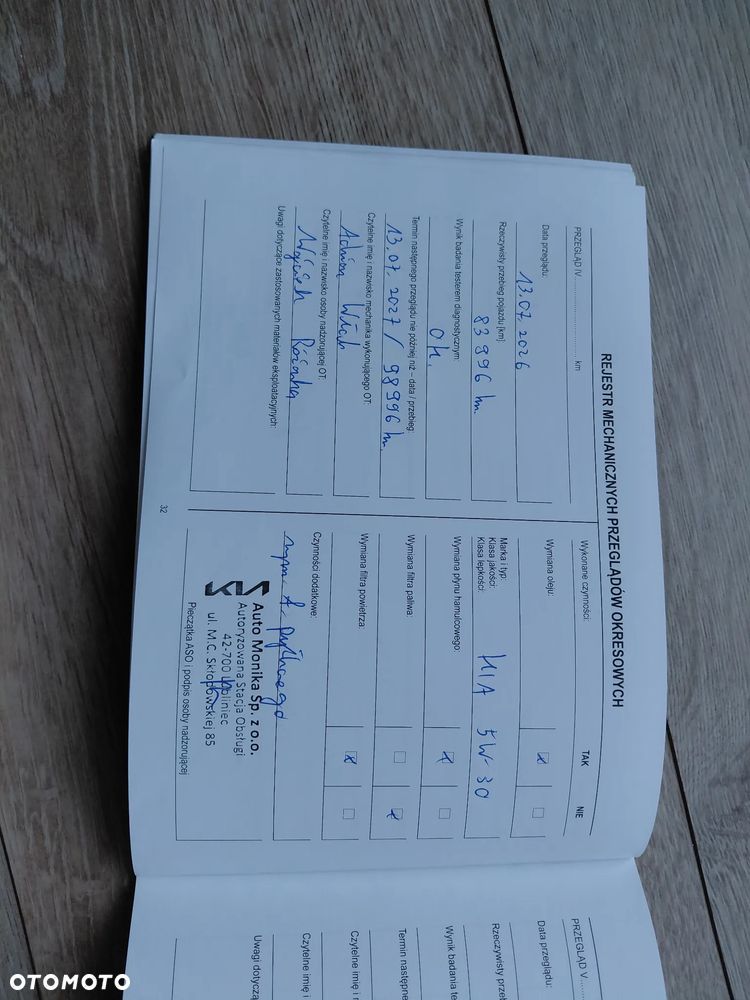 REJESTR MECHANICZNYCH PRZEGLĄDÓW OKRESOWYCH
PRZEGLĄD IV ........................ km
Data przeglądu:
13.07.2026
Rzeczywisty przebieg pojazdu [km]:
83 996 km.
Wynik badania testerem diagnostycznym:
O.K.
Termin następnego przeglądu nie później niż – data / przebieg:
13.07.2027 / 98996 km.
Czytelne imię i nazwisko mechanika wykonującego OT:
Adrian
Czytelne imię i nazwisko osoby nadzorującej OT:
Wojciech
Uwagi dotyczące zastosowanych materiałów eksploatacyjnych:
32
Wykonane czynności: TAK NIE
Wymiana oleju: x
Marka i typ:
Klasa jakości:
Klasa lepkości:
KIA 5W-30
Wymiana płynu hamulcowego: x
Wymiana filtra paliwa: x
Wymiana filtra powietrza: x
Czynności dodatkowe:
wym. f. pyłkowego
Auto Monika Sp. z o.o.
Autoryzowana Stacja Obsługi
42-700 Lubliniec
ul. M.C. Skłodowskiej 85
Pieczątka ASO i podpis osoby nadzorującej
PRZEGLĄD V
Data przeglądu:
Rzeczywisty przeb
Wynik badania te
Termin następne
Czytelne imię i
Czytelne imię i
Uwagi dotycz
OTOMOTO